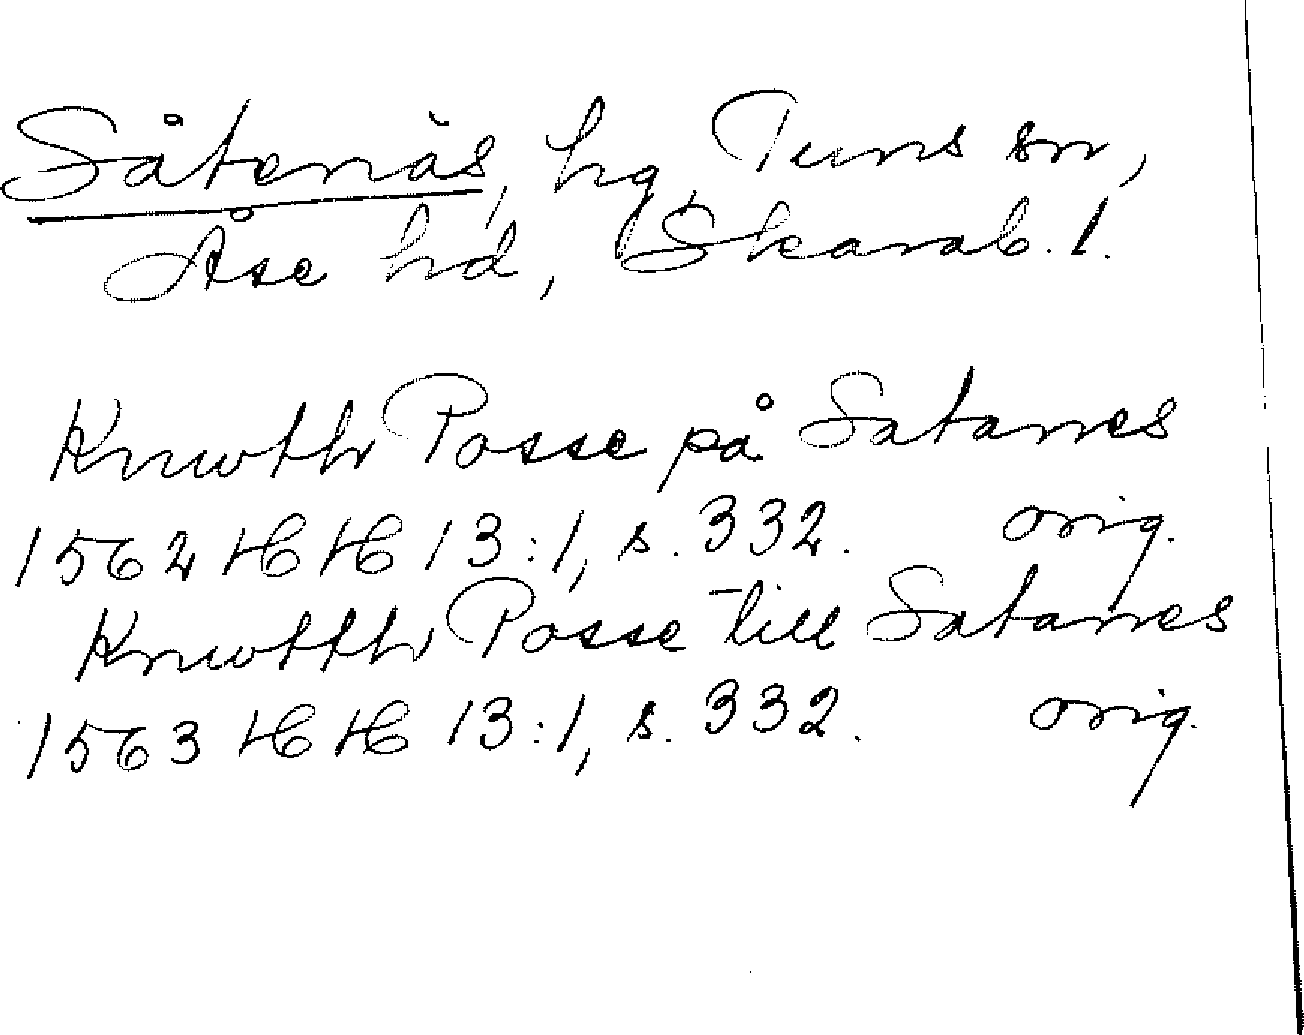 Såtenäs, hg, Tuns sn,
Åse hd, Skarab. l.
Knwth Posse på Satanes
1562 HH 13:1, s. 332. orig.
Knwtth Posse till Satanes
1563 HH 13:1, s. 332. orig.